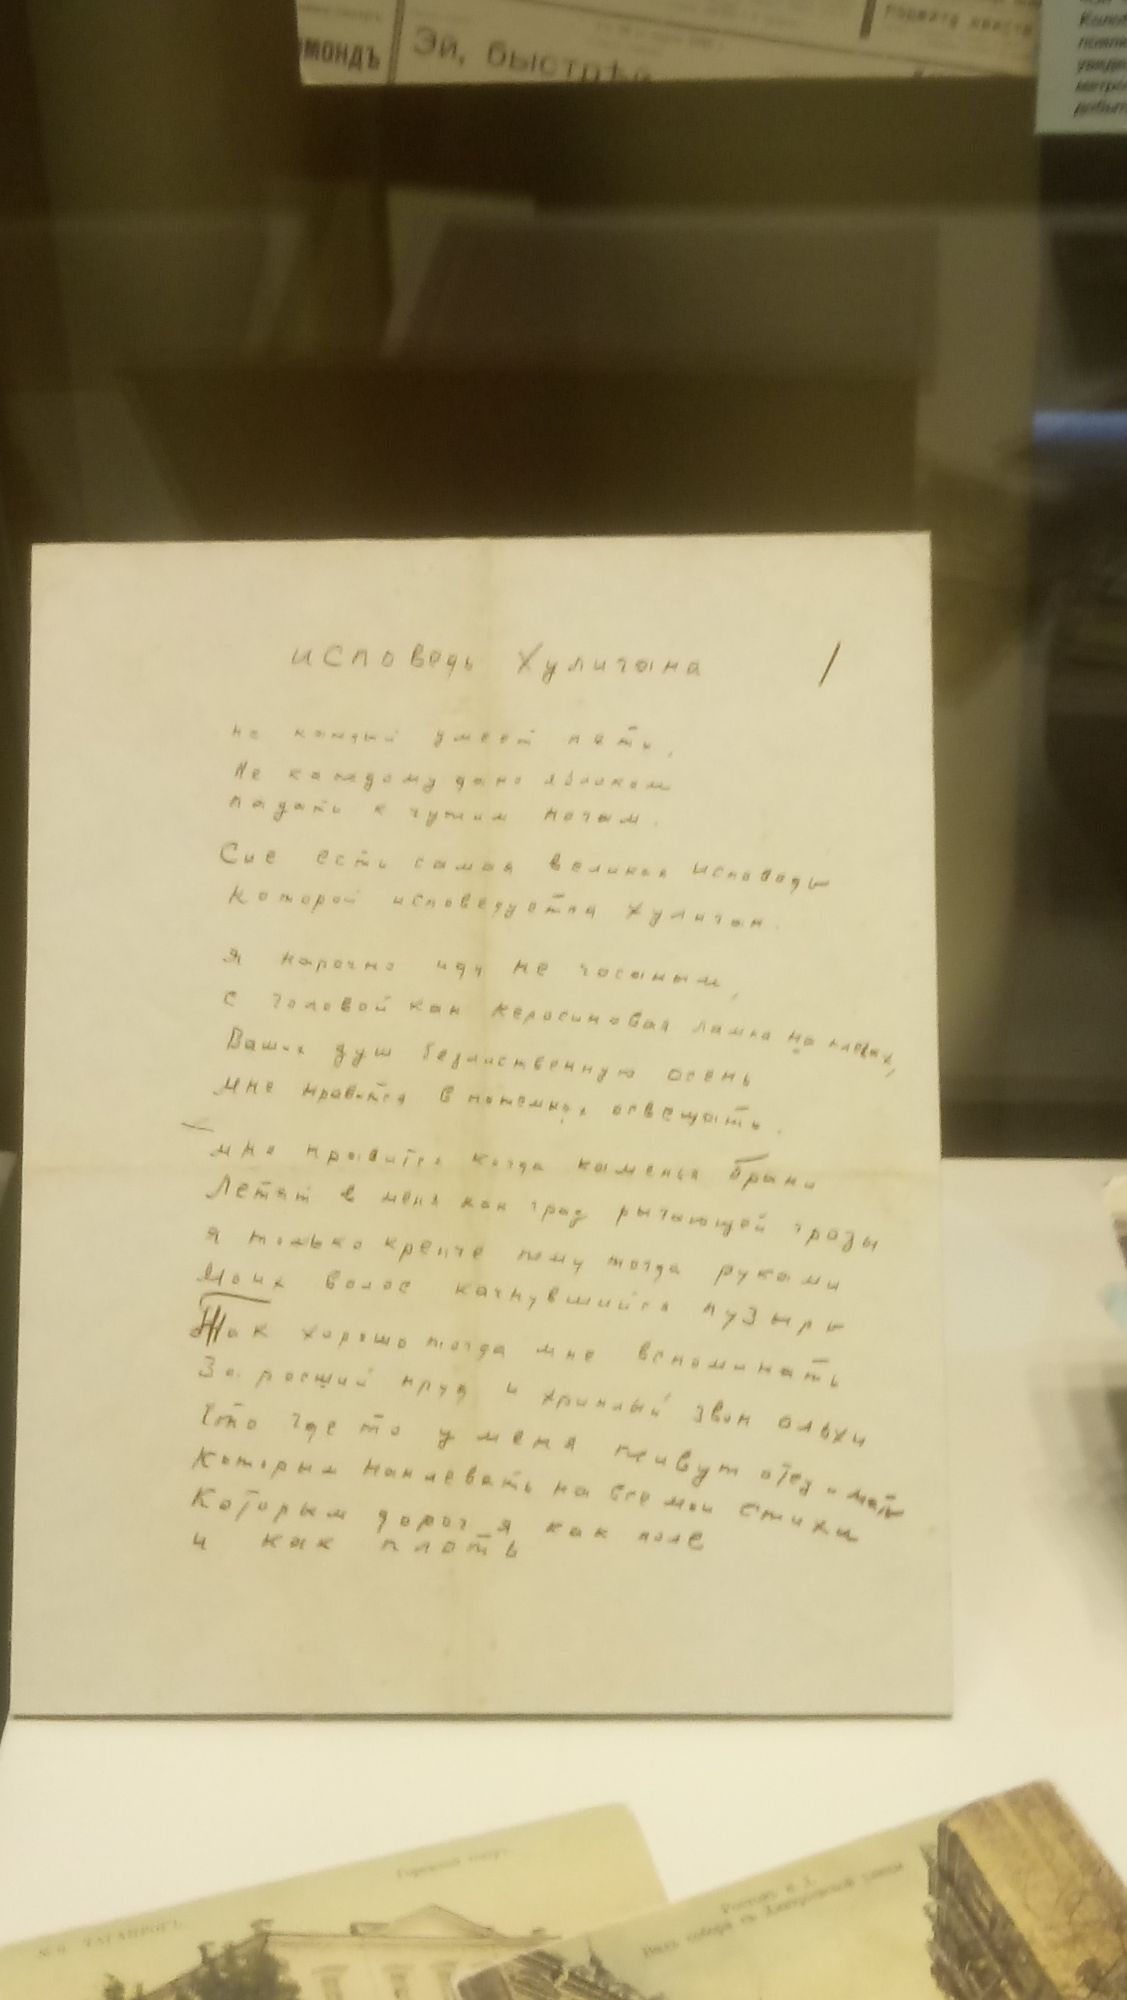 МОНДЪ
Эй, быстрѣй
исповедь Хулигана
/
не каждый умеет петь,
Не каждому дано яблоком
падать к чужим ногам.
Сие есть самая великая исповедь
Которой исповедуется хулиган.
я нарочно иду не часаным,
с головой как керосиновая лампа на плечах,
Ваших душ безлиственную осень
мне нравится в потемках освещать.
мне нравится когда каменья брани
Летят в меня как град рыгающей грозы
я только крепче жму тогда руками
Моих волос качнувшийся пузырь
Так хорошо тогда мне вспоминать
Заросший пруд и хриплый звон ольхи
Что где то у меня живут отец и мать
Которым наплевать на все мои стихи
Которым дорог я как поле
и как плоть
ТАГАНРОГЪ
Ростовъ н Д.
Видъ собора съ